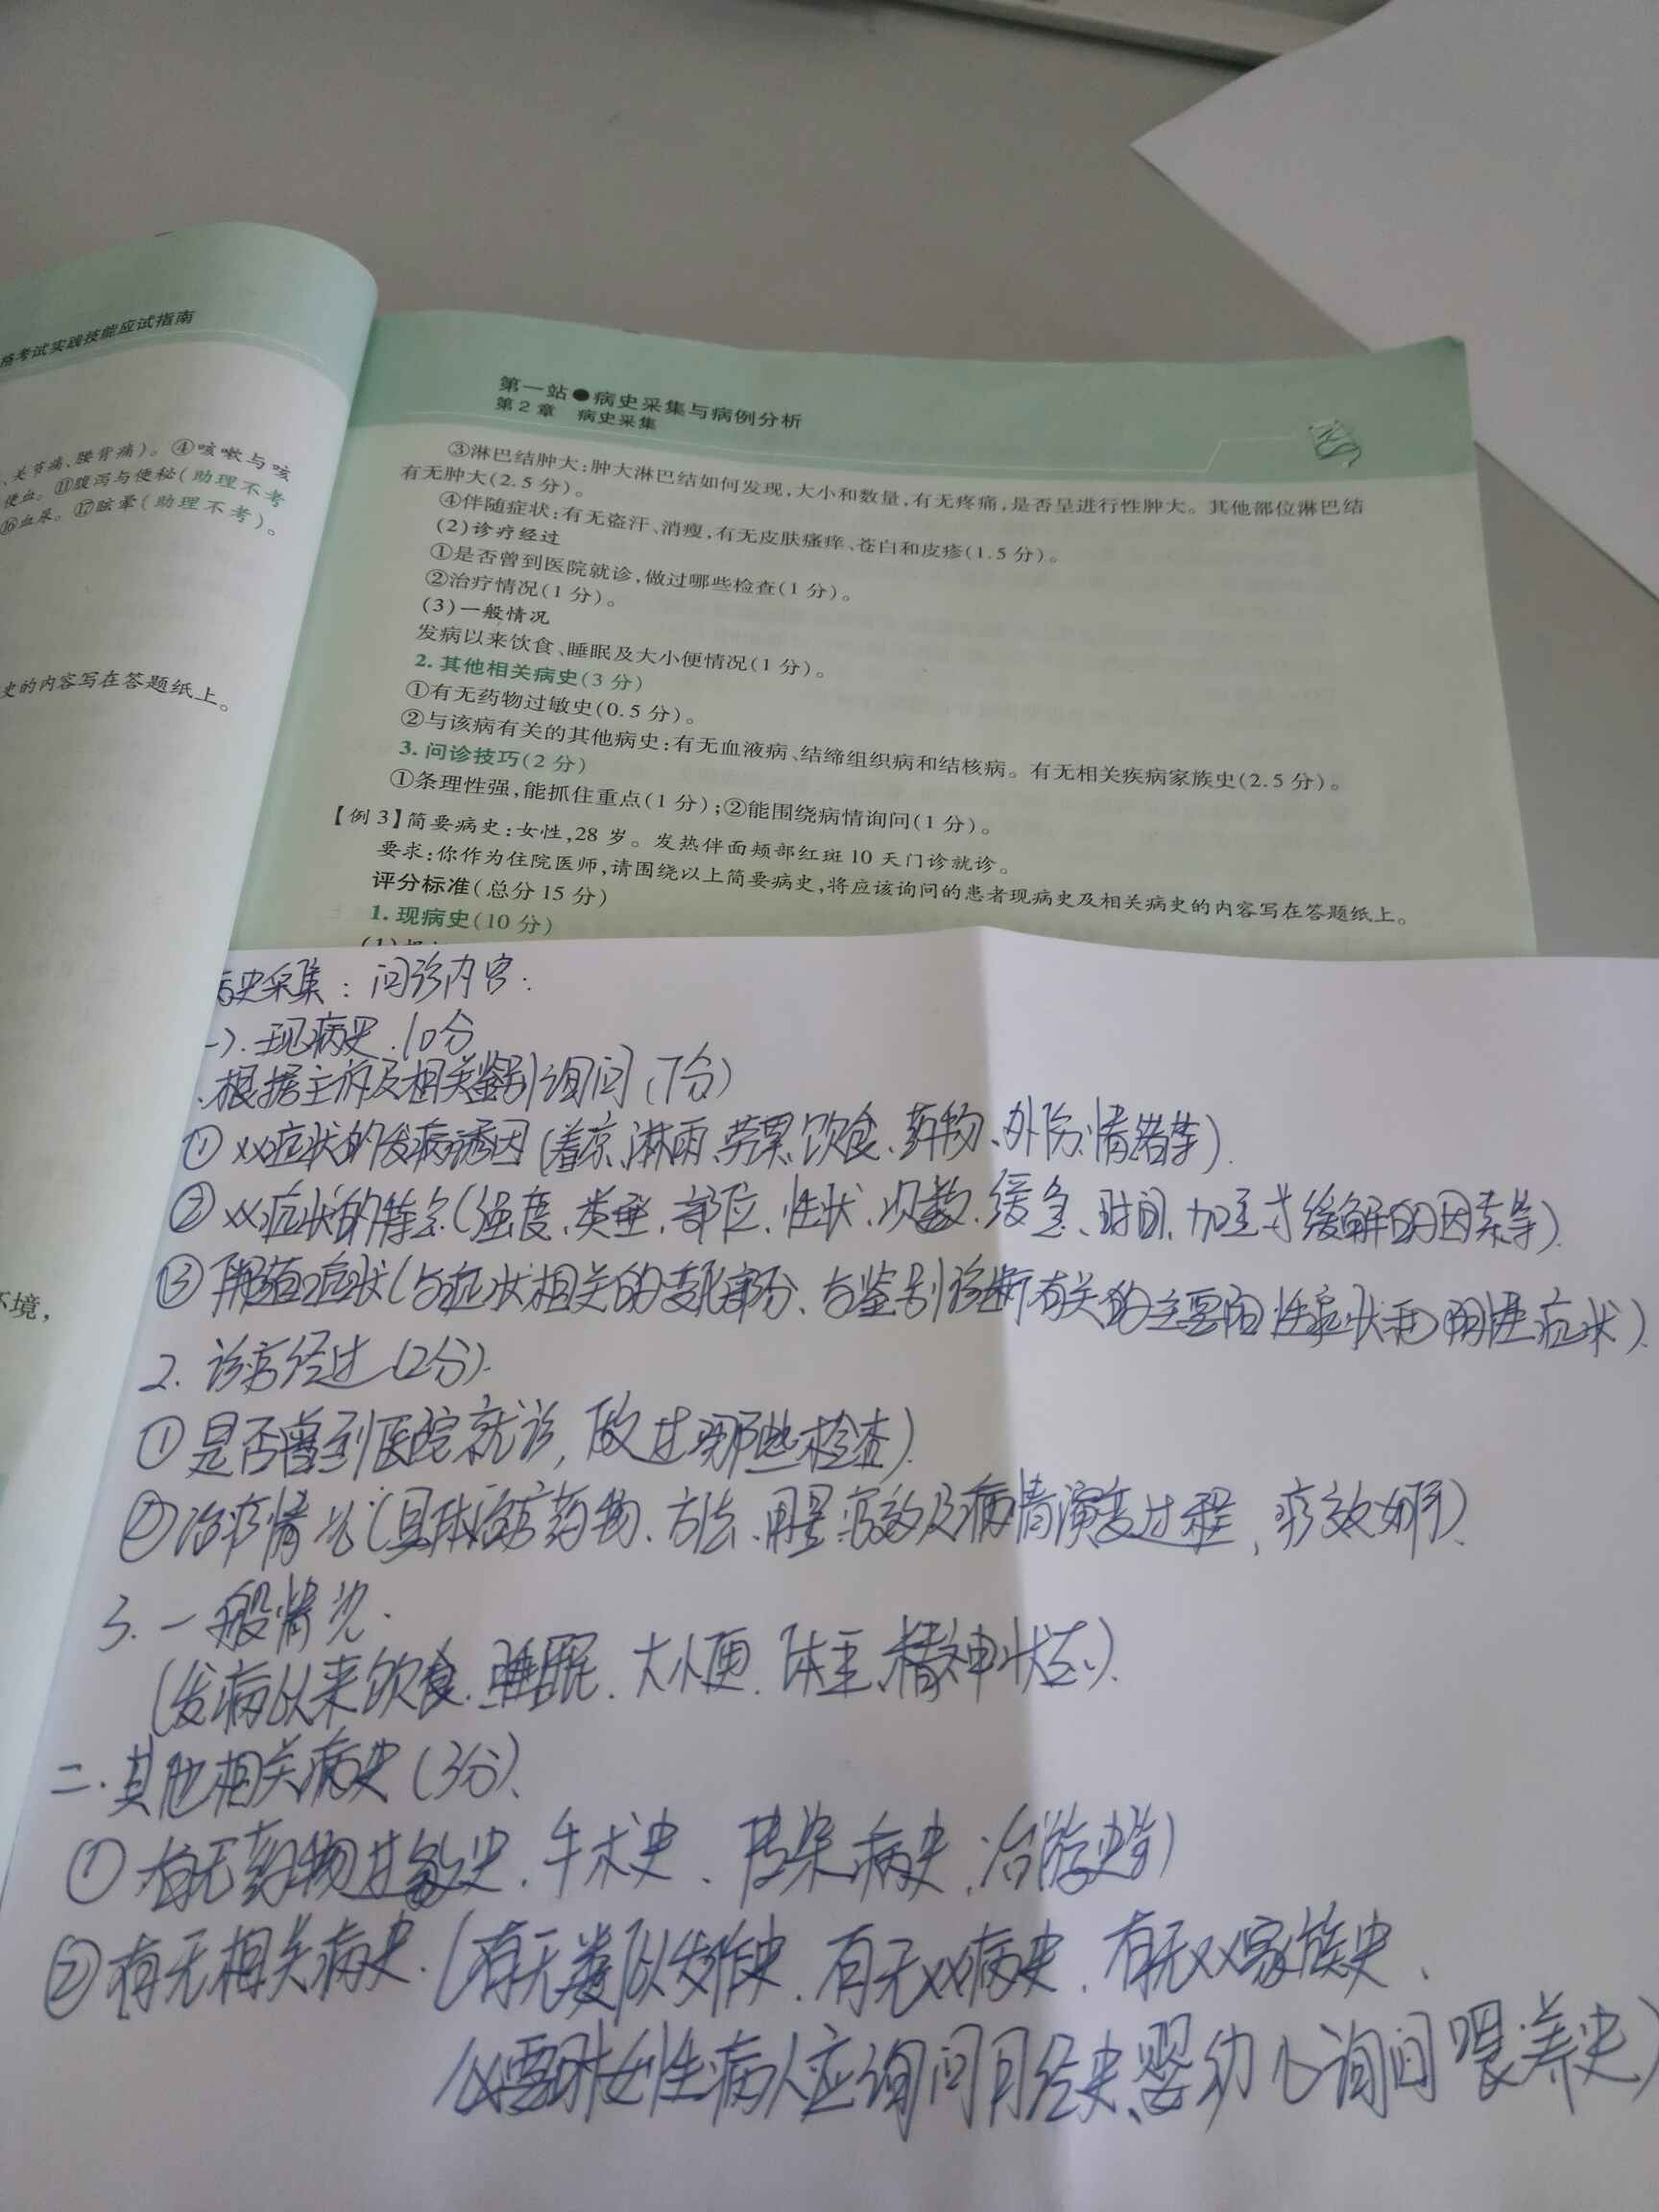 格考试实践技能应试指南
、关节痛、腰背痛)。④咳嗽与咳
便血。⑪腹泻与便秘(助理不考
⑯血尿。⑰眩晕(助理不考)。
史的内容写在答题纸上。
环境,
第一站●病史采集与病例分析
第2章 病史采集
③淋巴结肿大:肿大淋巴结如何发现,大小和数量,有无疼痛,是否呈进行性肿大。其他部位淋巴结
有无肿大(2.5分)。
④伴随症状:有无盗汗、消瘦,有无皮肤瘙痒、苍白和皮疹(1.5分)。
(2)诊疗经过
①是否曾到医院就诊,做过哪些检查(1分)。
②治疗情况(1分)。
(3)一般情况
发病以来饮食、睡眠及大小便情况(1分)。
2.其他相关病史(3分)
①有无药物过敏史(0.5分)。
②与该病有关的其他病史:有无血液病、结缔组织病和结核病。有无相关疾病家族史(2.5分)。
3.问诊技巧(2分)
①条理性强,能抓住重点(1分);②能围绕病情询问(1分)。
【例3】简要病史:女性,28岁。发热伴面颊部红斑10天门诊就诊。
要求:你作为住院医师,请围绕以上简要病史,将应该询问的患者现病史及相关病史的内容写在答题纸上。
评分标准(总分15分)
1.现病史(10分)
病史采集:问诊内容:
一).现病史.10分
.根据主诉及相关鉴别询问(7分)
①xx症状的发病诱因(着凉、淋雨、劳累、饮食、药物、外伤、情绪等).
②xx症状的特点(强度、类型、部位、性状、次数、缓急、时间、加重与缓解的因素等).
③伴随症状(与症状相关的变化部分、与鉴别诊断有关的主要阳性症状和阴性症状).
2.诊疗经过(2分).
①是否曾到医院就诊,做过哪些检查).
②治疗情况(具体治疗药物、方法、用量、疗效及病情演变过程,疗效如何).
3.一般情况.
(发病以来饮食、睡眠、大小便、体重、精神状态).
二.其他相关病史(3分).
①有无药物过敏史、手术史、传染病史、冶游史等)
②有无相关病史.(有无类似发作史、有无xx病史、有无xx家族史、
必要时女性病人应询问月经史、婴幼儿询问喂养史)